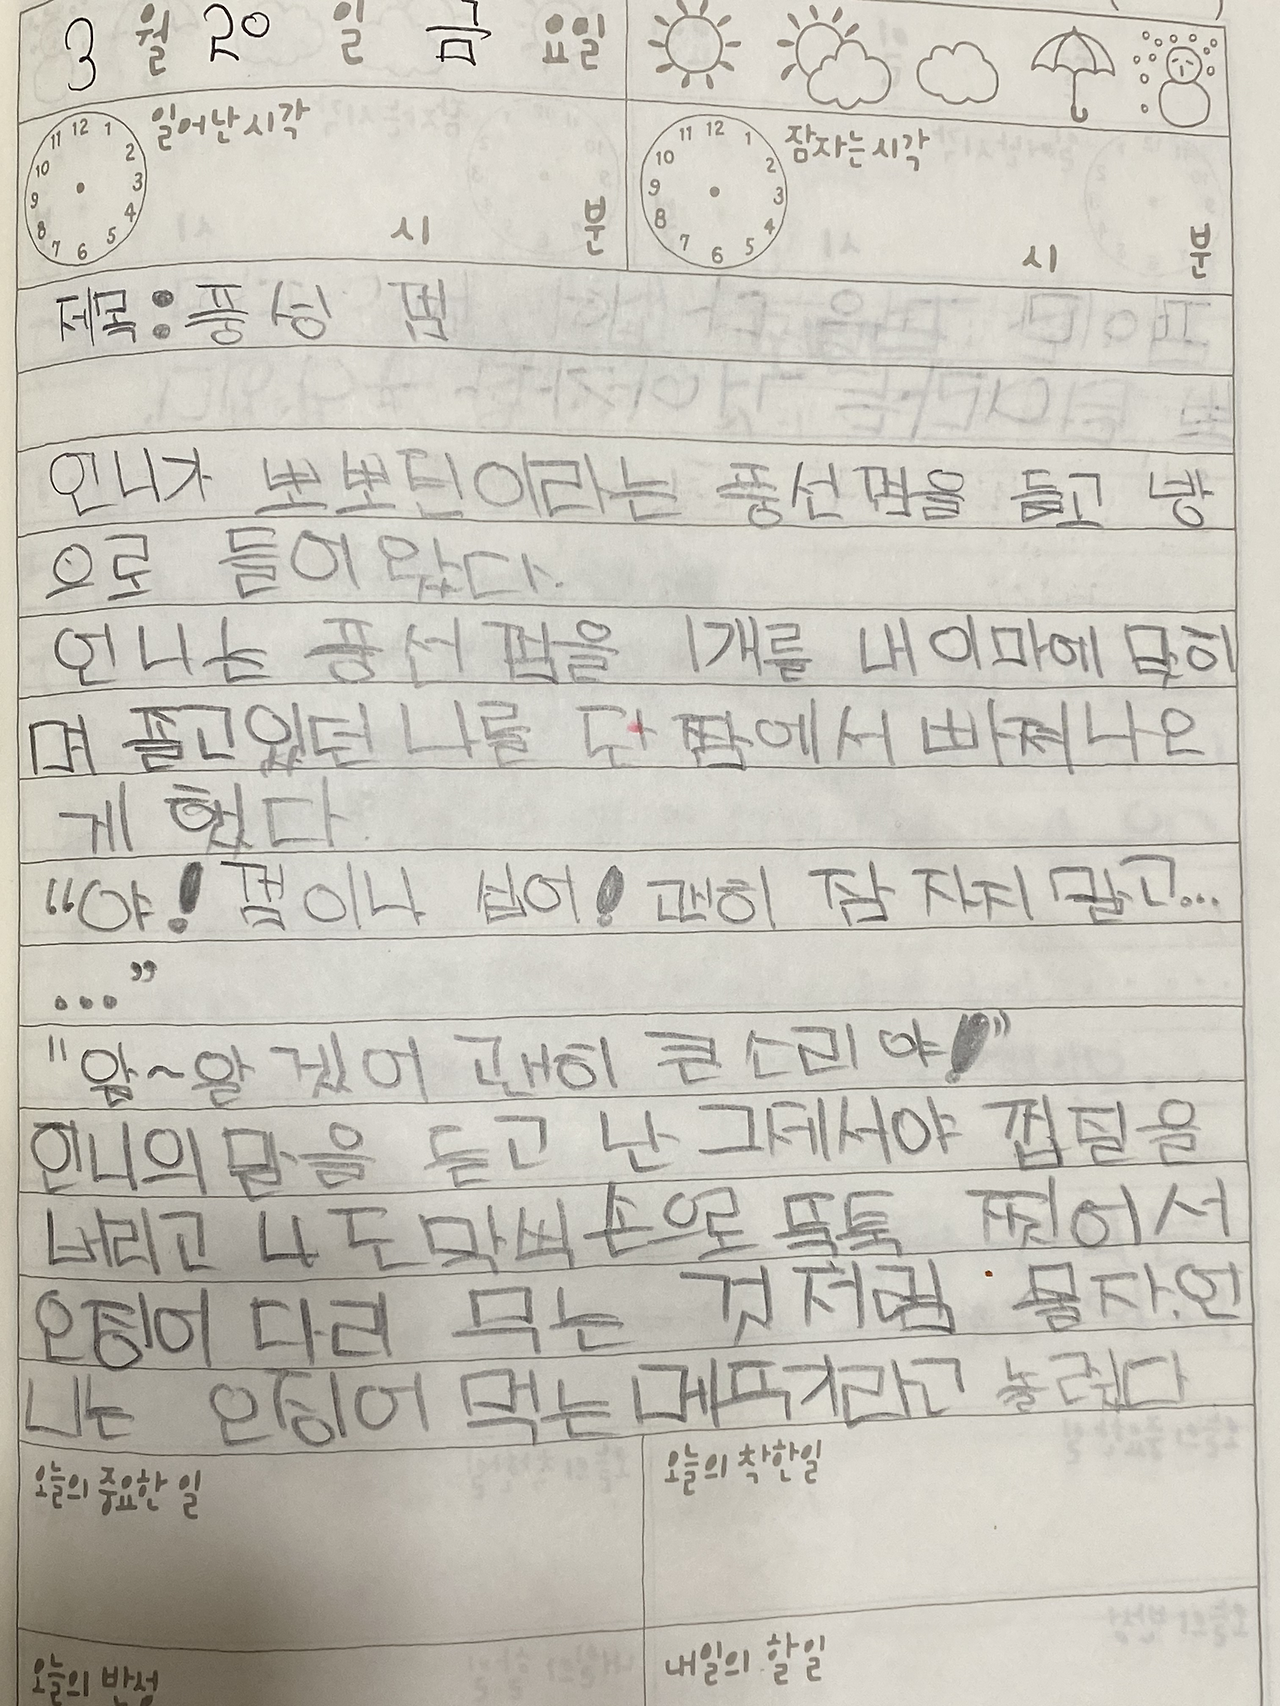 3 월 20 일 금 요일
일어난 시각
11 12 1
10 2
9 3
8 4
7 6 5
시 분
잠자는 시각
11 12 1
10 2
9 3
8 4
7 6 5
시 분
제목: 풍성 껌
언니가 뽀뽀틴이라는 풍선껌을 들고 방
으로 들어 왔다.
언니는 풍선 껌을 1개를 내 이마에 맞히
며 졸고있던 나를 단 짬에서 빠져나오
게 했다
“야! 껌이나 씹어! 괜히 잠 자지 말고...
...”
"알~알 겠어 괜히 큰 소리 야!”
언니의 말을 듣고 난 그제서야 껍질을
버리고 나도 막씩 손으로 뚝뚝 찢어서
오징어 다리 무는 것 처럼 물자.언
니는 오징어 먹는 메뚜기라고 놀렸다
오늘의 중요한 일
오늘의 착한일
오늘의 반성
내일의 할일